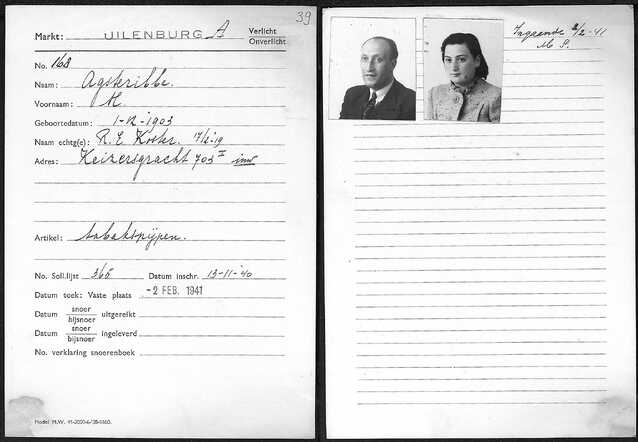 39
Markt: UILENBURG A Verlicht
Onverlicht
No. 168
Naam: Agsteribbe.
Voornaam: M.
Geboortedatum: 1-12-1903
Naam echtg(e): R. E. Koster. 17/2-'19
Adres: Keizersgracht 703 II inw
Artikel: tabakspijpen.
No. Soll.lijst 365 Datum inschr. 13-11-'40
Datum toek: Vaste plaats -2 FEB. 1941
Datum snoer
bijsnoer uitgereikt
Datum snoer
bijsnoer ingeleverd
No. verklaring snoerenboek
Model M.W.
Ingaande 2/2-41
M. S.